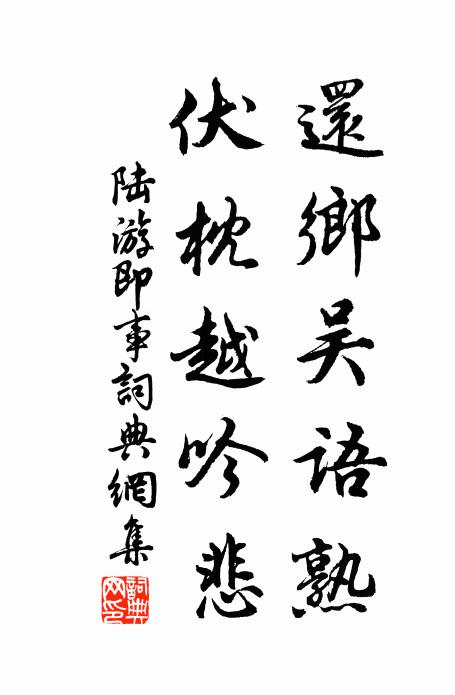 還鄉吴語熟
伏枕越吟悲
陸游即事詞典網集
詞典
网印